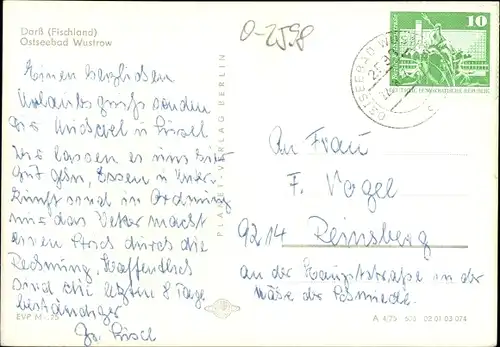 Darß (Fischland)
Ostseebad Wustrow
0-2598
10
DEUTSCHE DEMOKRATISCHE REPUBLIK
OSTSEEBAD W
Einen herzlichen
Urlaubsgruß senden
Michael u. Gisel
Wir lassen es uns hier
gut gehn, Essen u. Unter-
kunft sind in Ordnung
nur das Wetter macht
einen Strich durch die
Rechnung. Hoffentlich
sind die letzten 8 Tage
beständiger
An Frau
F. Vogel
9214 Reinsberg
an der Hauptstraße in der
Nähe der Schmiede.
PLANET-VERLAG BERLIN
EVP M -,25
A 4/75 503 02 01 03 074